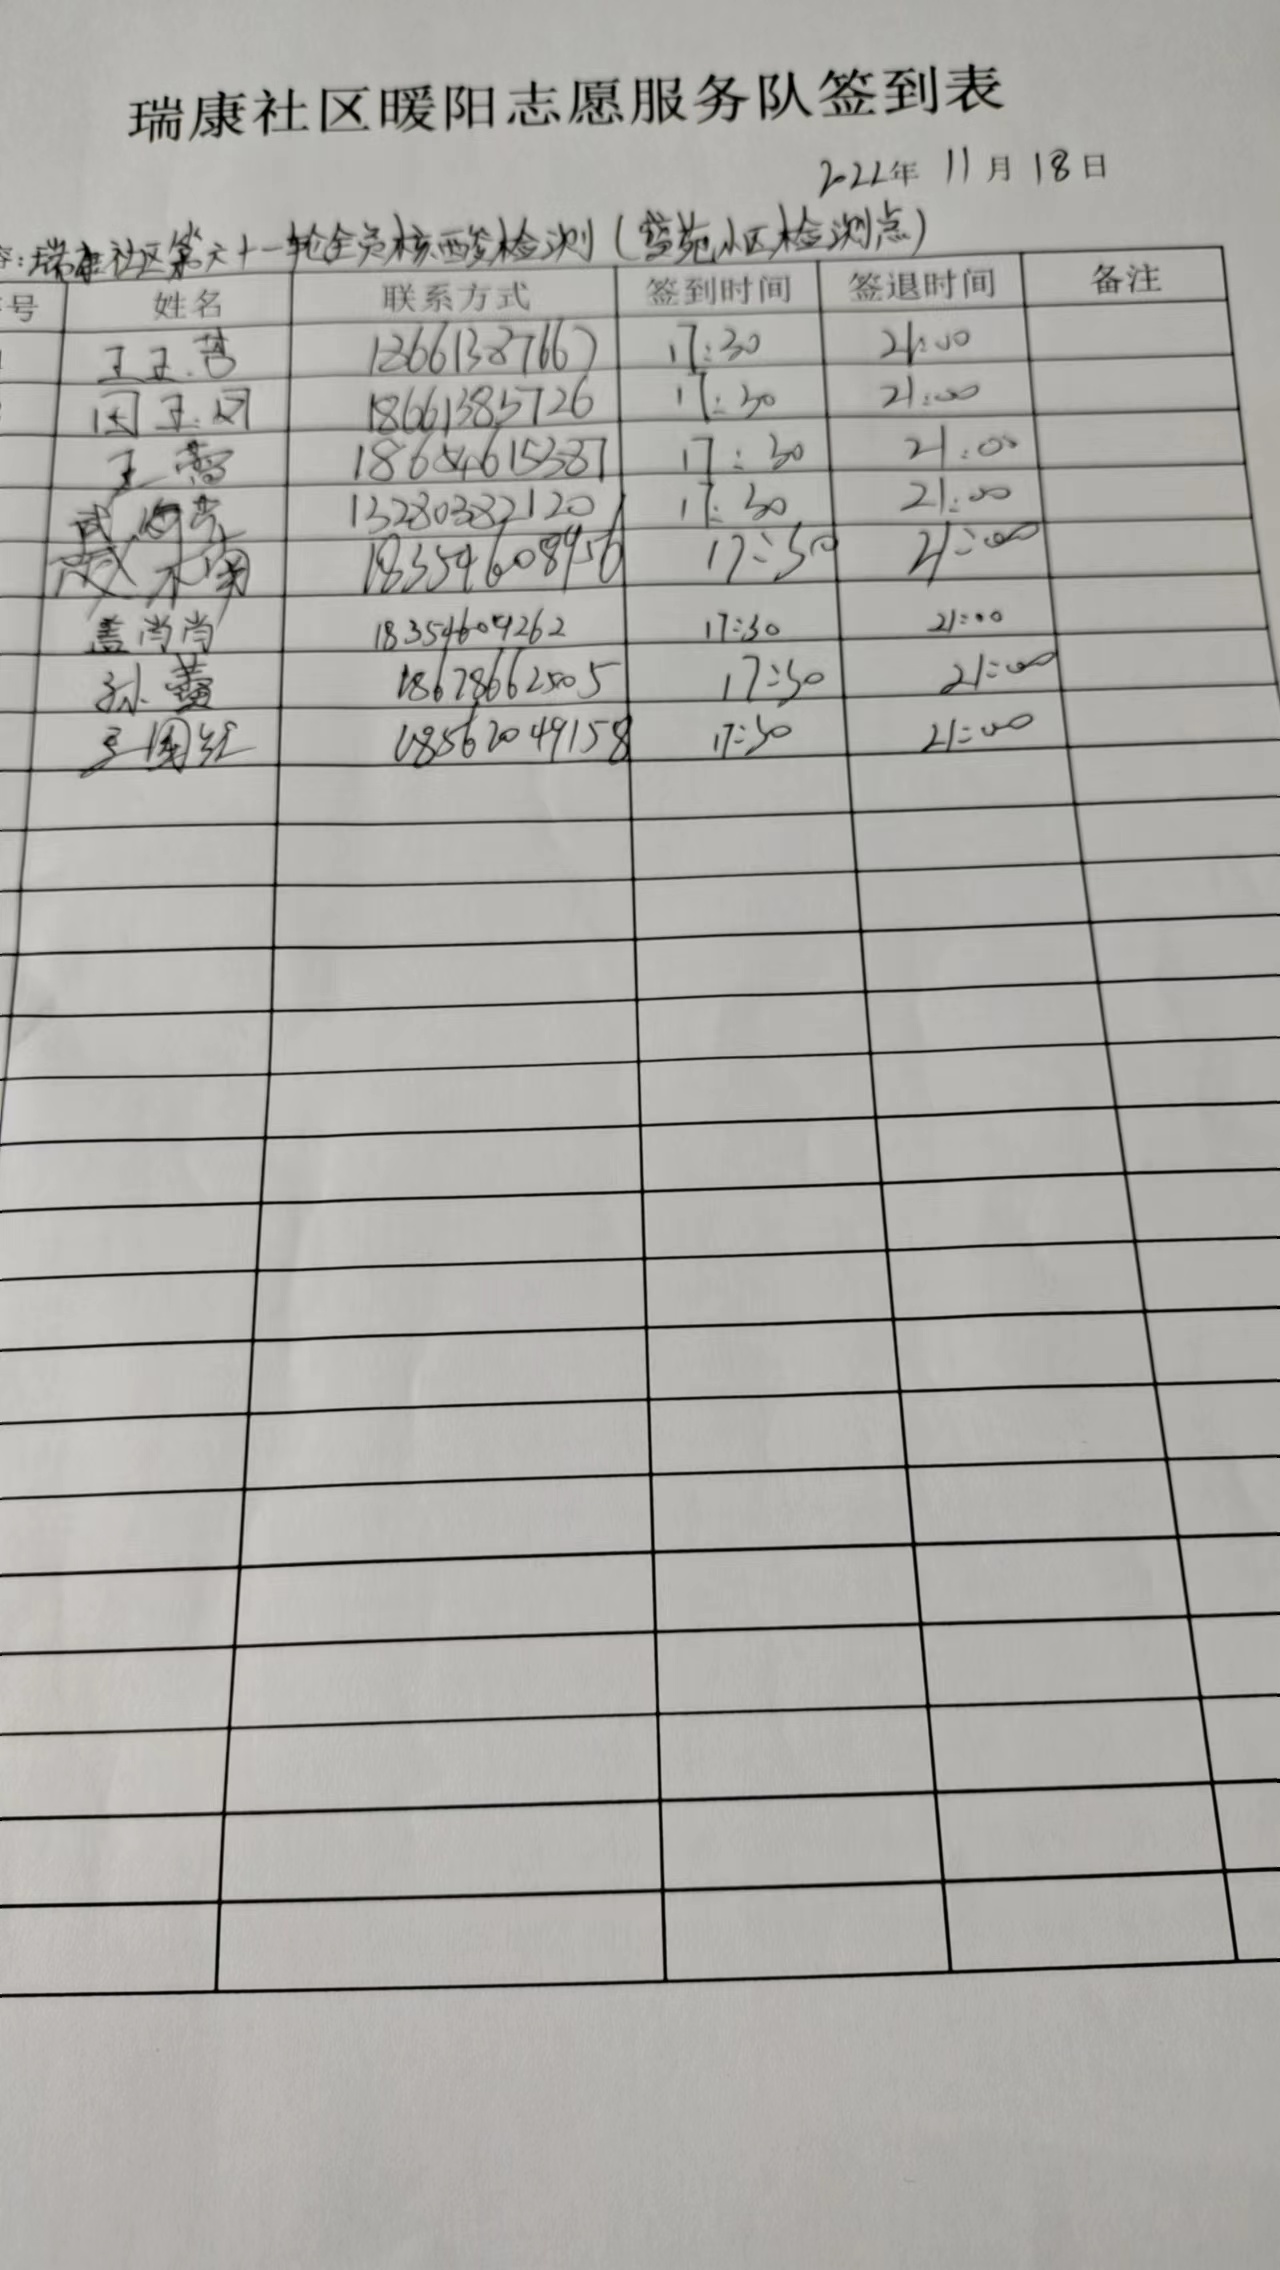 瑞康社区暖阳志愿服务队签到表
2022年 11月 18日
容:瑞康社区第六十一轮全员核酸检测(蓝苑小区检测点)
号 姓名 联系方式 签到时间 签退时间 备注
17:30 21:00
18661385726 17:30 21:00
王 18654615387 17:30 21:00
13280382120 17:30 21:00
18354608956 17:30 21:00
盖尚尚 18354609262 17:30 21:00
孙 18678662505 17:30 21:00
王国红 18562049158 17:30 21:00